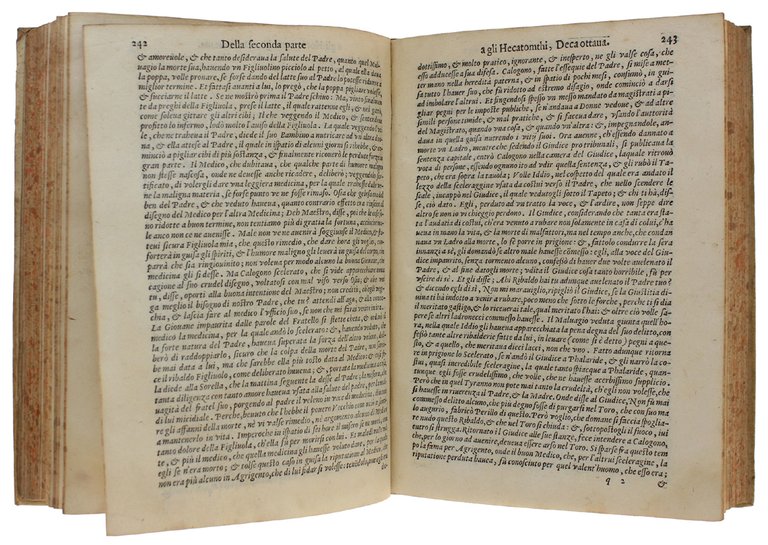 242 Della seconda parte
& amoreuole, & che tanto desideraua la salute del Padre, quanto quel Mal-
uagio la morte sua, hauendo vn Figliuolino picciolo al petto, al quale ella daua
la poppa, volle prouare, se forse dando del latte suo al Padre lo potesse ridurre à
miglior termine. Et fattasi quanti a lui, lo pregò, che la poppa pigliar volesse,
& succiarne il latte. Se ne mostrò prima il Padre schiuo: Ma, vinto
da preghi della Figliuola, prese il latte, il quale
come soleua gittare gli altri cibi. Il che veggendo il Medico, &
profitto lo infermo, lodò molto l'auiso della Figliuola. La quale veggendo l'vti
le, che ne trahena il Padre, diede il suo Bambino a nutricare ad vn'altra don
na, & ella attese al Padre, il quale in ispatio di alcuni giorni si rihebbe, & co
minciò a pigliar cibi di più sostanza, & finalmente ricouerò le perdute forze in
gran parte. Il Medico, che dubitaua, che qualche parte di humore maligno
non stesse nascosa, onde ne deuesse anche ricadere, deliberò; veggendolo for
tificato, di volergli dare vna leggiera medicina, per la quale se ne
ne la maligna materia, se forse punto ve ne fosse rimaso.
ben del Padre, & che veduto haueua, quanto contrario effetto era riuscito il
disegno del Medico per l'altra Medicina; Deh Maestro, disse, poi che le cose so
no ridotte a buon termine, non tentiamo più di gratia la fortuna, accioche ta
le anco non ce ne auenisse. Mal non ne auerrà soggiunse il Medico,
teui sicura Figliuola mia, che questo rimedio, che dare hora gli voglio, con
forterà in guisa gli spiriti, & humore maligno gli leuerà in guisa dal corpo, che
parrà che sia ringiouinito; non vi date molestia alcuna, &
medicina gli si desse. Ma Calogono scelerato, che si vide apparecchiar
cagione al suo crudel disegno, voltatosi con mal viso verso
vi, disse, oporti alla buona intentione del Maestro; non credi, ch'egli veg
ga meglio il bisogno di nostro Padre, che tu? attendi all'ago, & al fuso,
& lascia fare al medico l'vfficio suo, se non che mi farai venir
La Giouane impaurita dalle parole del Fratello si stette cheta, & ordinò il
medico la medicina, per la quale andò lo scelerato: &, hauendo veduto, che
la forte natura del Padre, haueua superata la forza dell'altro veleno,
berò di raddoppiarlo, sicuro che la colpa della morte del Padre, non sareb
be mai data a lui, ma che sarebbe ella più tosto data al Medico: & così fe
ce il ribaldo Figliuolo, come deliberato haueua; &, portata la medicina a casa,
la diede alla Sorella, che la mattina seguente la desse al Padre;
tanta diligenza con tanto amore haueua vsata alla salute del padre,
uagità del fratel suo, porgendo al padre il veleno in vece di medicina,
di lui micidiale. Perche, beuuto che l'hebbe il pouero Vecchio
re gli affanni della morte, nè vi valse rimedio, nè argomento alcuno
a mantenerlo in vita. Imperoche in ispatio di sei hore il misero si morì, con
tanto dolore della Figliuola, ch'ella fu per morirsi con lui. Et
te, & più il medico, che quella medicina gli haueuan veluto dare, per la quale
egli se n'era morto; & tolse questo caso in guisa la riputatione al Medico,
non era più alcuno in Agrigento, che di lui fidar si volesse:
a gli Hecatomthi, Deca ottaua. 243
dottissimo, & molto pratico, ignorante, & inesperto, ne gli valse cosa, che
esso adducesse a sua difesa. Calogono, fatte l'essequie del Padre, si mise a met-
ter mano nella heredità paterna, & in ispatio di pochi mesi, consumò, in guis-
sa tutto l'hauer suo, che fù ridotto ad estremo disagio, onde cominciò a darsi
ad imbolare l'altrui. Et fingendosi spesso vn messo mandato da magistrati a pi-
gliar pegni per le imposte publiche, se n'andaua a Donne vedoue, & ad altre
simili persone timide, & mal pratiche, & si faceua dare, vsando l'autorità
del Magistrato, quando vna cosa, & quando vn'altra: &, impegnandole, an-
daua in quella guisa nutrendo i vitij suoi. Ora auenne, ch'essendo dannato a
morte vn Ladro, mentre che sedendo il Giudice pro tribunali, si publicaua la
sentenza capitale, entrò Calogono nella camera del Giudice, laquale ritrouò
vota di persone, essendo ognuno ito ad vdir quella sentenza, & gli rubò il Ta-
peto, che era sopra la tauola; Volle Iddio, che nel cospetto del quale era andato il
lezzo della sceleraggine vsata da costui verso il Padre, che nello scendere le
scale, incappò nel Giudice, il quale vedutogli sotto il Tapeto; Chi te l'hà, dis-
se, ciò dato. Egli, perduto ad vn tratto la voce, & l'ardire, non seppe dire
altro se non io vi chieggio perdono. Il Giudice, considerando che tanta era sta-
ta l'audatia di costui, ch'era venuto a rubare non solamente in casa di colui, c'ha
ueua in mano la vita, & la morte di malfattori, ma nel tempo anche, che condan-
naua vn Ladro alla morte, lo fè porre in prigione: &, fattolo condurre la sera
innanzi a sè, gli domandò se altro male hauesse cōmesso: egli, alla voce del Giu-
dice impaurito, senza altro tormento, confessò di hauer due volte auelenato il
Padre, & al fine datogli morte; vdita il Giudice cosa tanto horribile, fù per
venir meno: & gli disse; Ahi Ribaldo hai tu adunque auelenato il Padre tuo?
& dicendo egli di sì; Non ti marauigliare, ripigliò il Giudice, se la Giustitia di-
uina ti hà indotto a venir a rubare, poco meno che sotto le forche, perche ti si dia
il meritato gastigo, & lo riceuerai tale, qual meritato l'hai: & oltre ciò volle sa-
pere se altri ladronecci commessi hauesse. Il Maluagio veduta giunta quell'ho-
ra, nella quale Iddio gli haueua apparecchiata la pena degna del suo delitto, con-
fessò tante altre ribalderie fatte da lui, fra in leuare (come si è detto) pegni a que-
sto, & a quello, che meritaua diece lacci, non che vno. Fatto adunque ritorna-
re in prigione lo Scelerato, se n'andò il Giudice a Phalaride, & gli narrò la co-
sa, quasi incredibile sceleragine, la quale tanto spiacque a Phalaride, quan-
tunque egli fosse crudelissimo, che volle, che ne hauesse acerbissimo supplicio.
Però che in quel Tyranno non pote mai tanto la crudeltà, ch'egli non volesse, che
si hauesse in riuerenza il Padre, & la Madre. Onde disse al Giudice, Non fù mai
commesso delitto alcuno, che più degno fosse di purgarsi nel Toro, che con suo ma
lo augurio, fabricò Perillo di quello. Però voglio, che domane si faccia spoglia-
re nudo questo Ribaldo, & che nel Toro si chiuda: &, sottopostogli il fuoco, iui
entro si strugga. Ritornato il Giudice alle sue stanze, fece intendere a Calogono,
che, per lo giorno ad auenire, deueua essere arso nel Toro. Si sparse frà questo tem
po la fama per Agrigento, onde il buon Medico, che, per l'altrui sceleragine, la
riputatione perduta haueua, fù conosciuto per quel valent'huomo, che esso era;
q 2 &